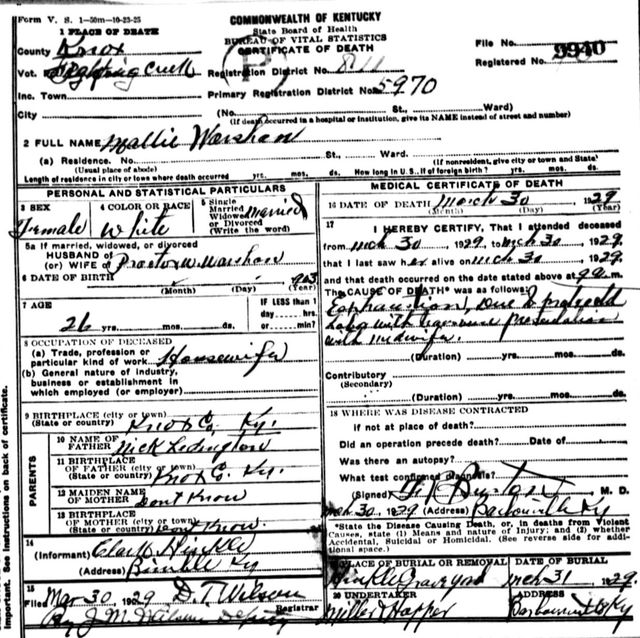 Form V. S. 1—50m—10-23-25
COMMONWEALTH OF KENTUCKY
State Board of Health
BUREAU OF VITAL STATISTICS
CERTIFICATE OF DEATH
1 PLACE OF DEATH
County Knox
File No. 9940
Registered No.
Vot. Creek
Registration District No. 811
Inc. Town
Primary Registration District No. 5970
City (No. St., Ward)
(If death occurred in a hospital or institution, give its NAME instead of street and number)
2 FULL NAME Mallie Warshaw
(a) Residence. No. St., Ward.
(Usual place of abode) (If nonresident, give city or town and State)
Length of residence in city or town where death occurred yrs. mos. ds. How long in U. S., if of foreign birth? yrs. mos. ds.
PERSONAL AND STATISTICAL PARTICULARS
3 SEX Female
4 COLOR OR RACE White
5 Single Married Widowed or Divorced (Write the word) Married
5a If married, widowed, or divorced
HUSBAND of
(or) WIFE of Proctor W. Warshaw
6 DATE OF BIRTH 1903
(Month) (Day) (Year)
7 AGE 26 yrs. mos. ds.
IF LESS than 1 day hrs. or min.?
8 OCCUPATION OF DECEASED
(a) Trade, profession or particular kind of work Housewife
(b) General nature of industry, business or establishment in which employed (or employer)
9 BIRTHPLACE (city or town)
(State or country) Knox Co, Ky.
PARENTS
10 NAME OF FATHER Nick Ledington
11 BIRTHPLACE OF FATHER (city or town) (State or country) Knox Co. Ky.
12 MAIDEN NAME OF MOTHER Dont Know
13 BIRTHPLACE OF MOTHER (city or town) (State or country) Dont Know.
14
(Informant) Hinkle
(Address) Ky
15
Filed Mar 30, 1929 D. T. Wilson
Registrar
By J. M. Wilson Deputy
MEDICAL CERTIFICATE OF DEATH
16 DATE OF DEATH March 30 1929
(Month) (Day) (Year)
17
I HEREBY CERTIFY, That I attended deceased
from Mch 30, 1929, to Mch 30, 1929,
that I last saw her alive on Mch 30, 1929
and that death occurred on the date stated above at 9 a m.
The CAUSE OF DEATH* was as follows:
Exhaustion, Due to
with presentation
with midwife.
(Duration) yrs. mos. ds.
Contributory
(Secondary)
(Duration) yrs. mos. ds.
18 WHERE WAS DISEASE CONTRACTED
if not at place of death?
Did an operation precede death? Date of
Was there an autopsy?
What test confirmed diagnosis?
(Signed) M. D.
Mch 30, 1929 (Address) Barbourville Ky
*State the Disease Causing Death, or, in deaths from Violent Causes, state (1) Means and nature of Injury; and (2) whether Accidental, Suicidal or Homicidal. (See reverse side for additional space.)
19 PLACE OF BURIAL OR REMOVAL
Hinkle Graveyard
DATE OF BURIAL
Mch 31, 1929
20 UNDERTAKER
Miller Hopper
ADDRESS
Barbourville Ky
important. See instructions on back of certificate.